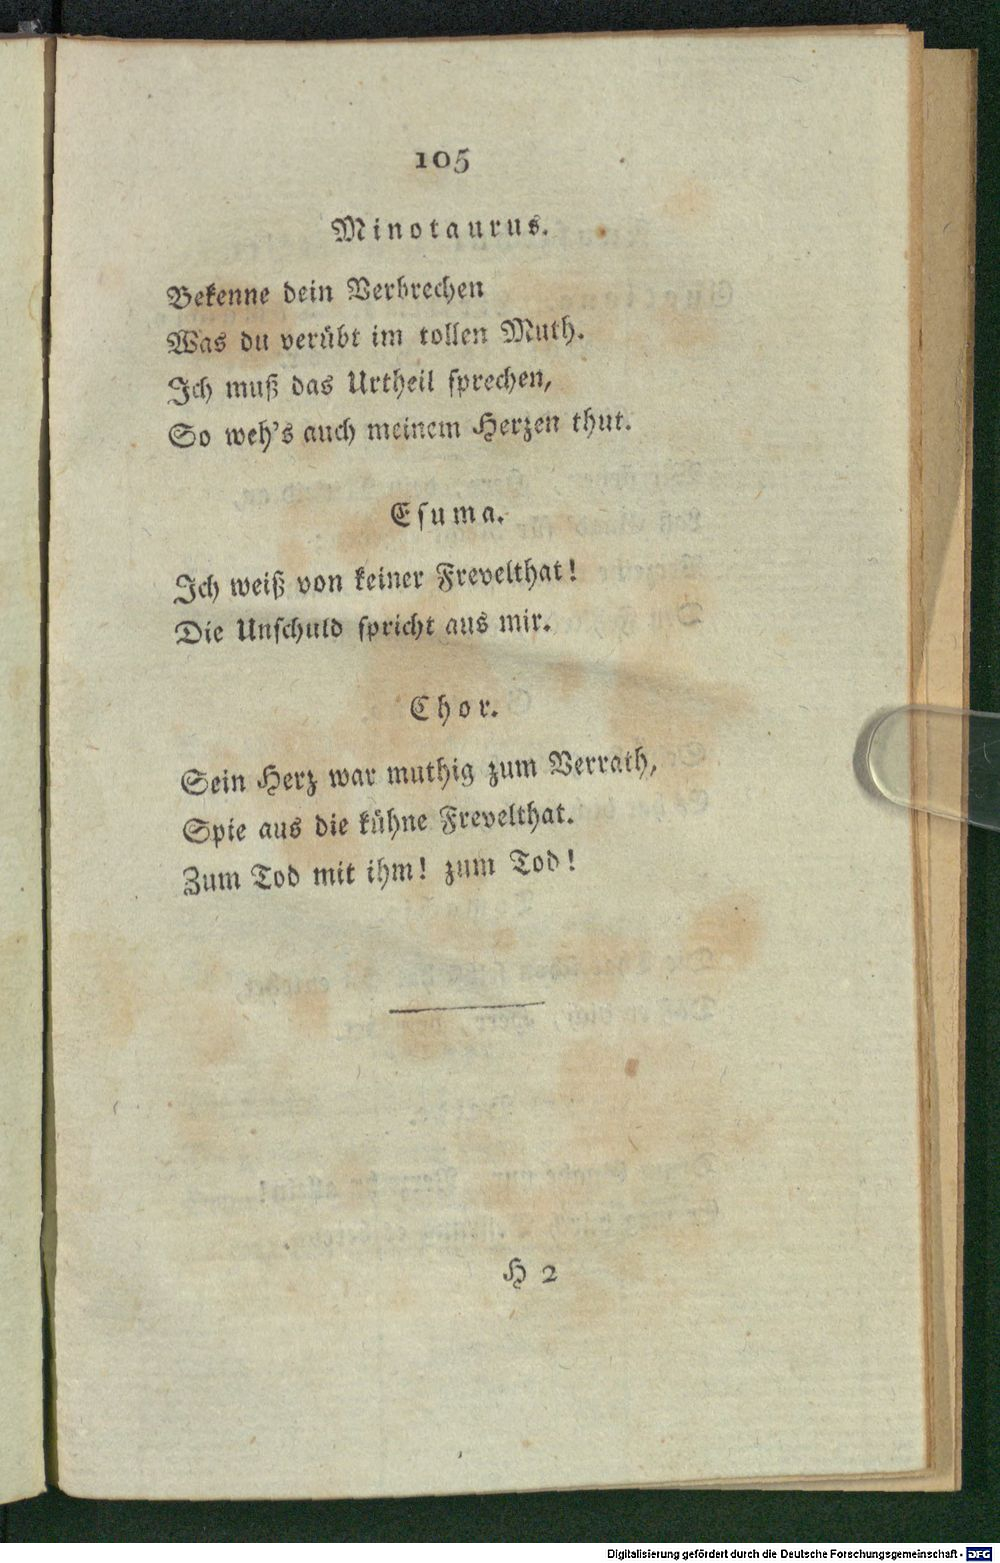 105
Minotaurus.
Bekenne dein Verbrechen
Was du verübt im tollen Muth.
Ich muß das Urtheil sprechen,
So weh's auch meinem Herzen thut.
Esuma.
Ich weiß von keiner Frevelthat!
Die Unschuld spricht aus mir.
Chor.
Sein Herz war muthig zum Verrath,
Spie aus die kühne Frevelthat.
Zum Tod mit ihm! zum Tod!
H 2
Digitalisierung gefördert durch die Deutsche Forschungsgemeinschaft - DFG